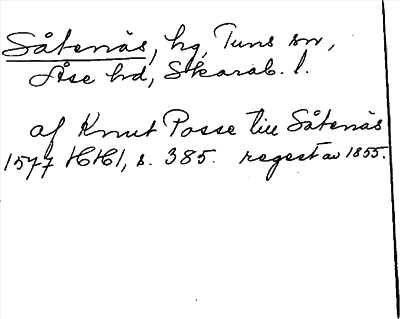 Såtenäs, hg, Tuns sn,
Åse hd, Skarab. l.
af Knut Posse till Såtenäs
1577 HHI, s. 385. regest av 1855.